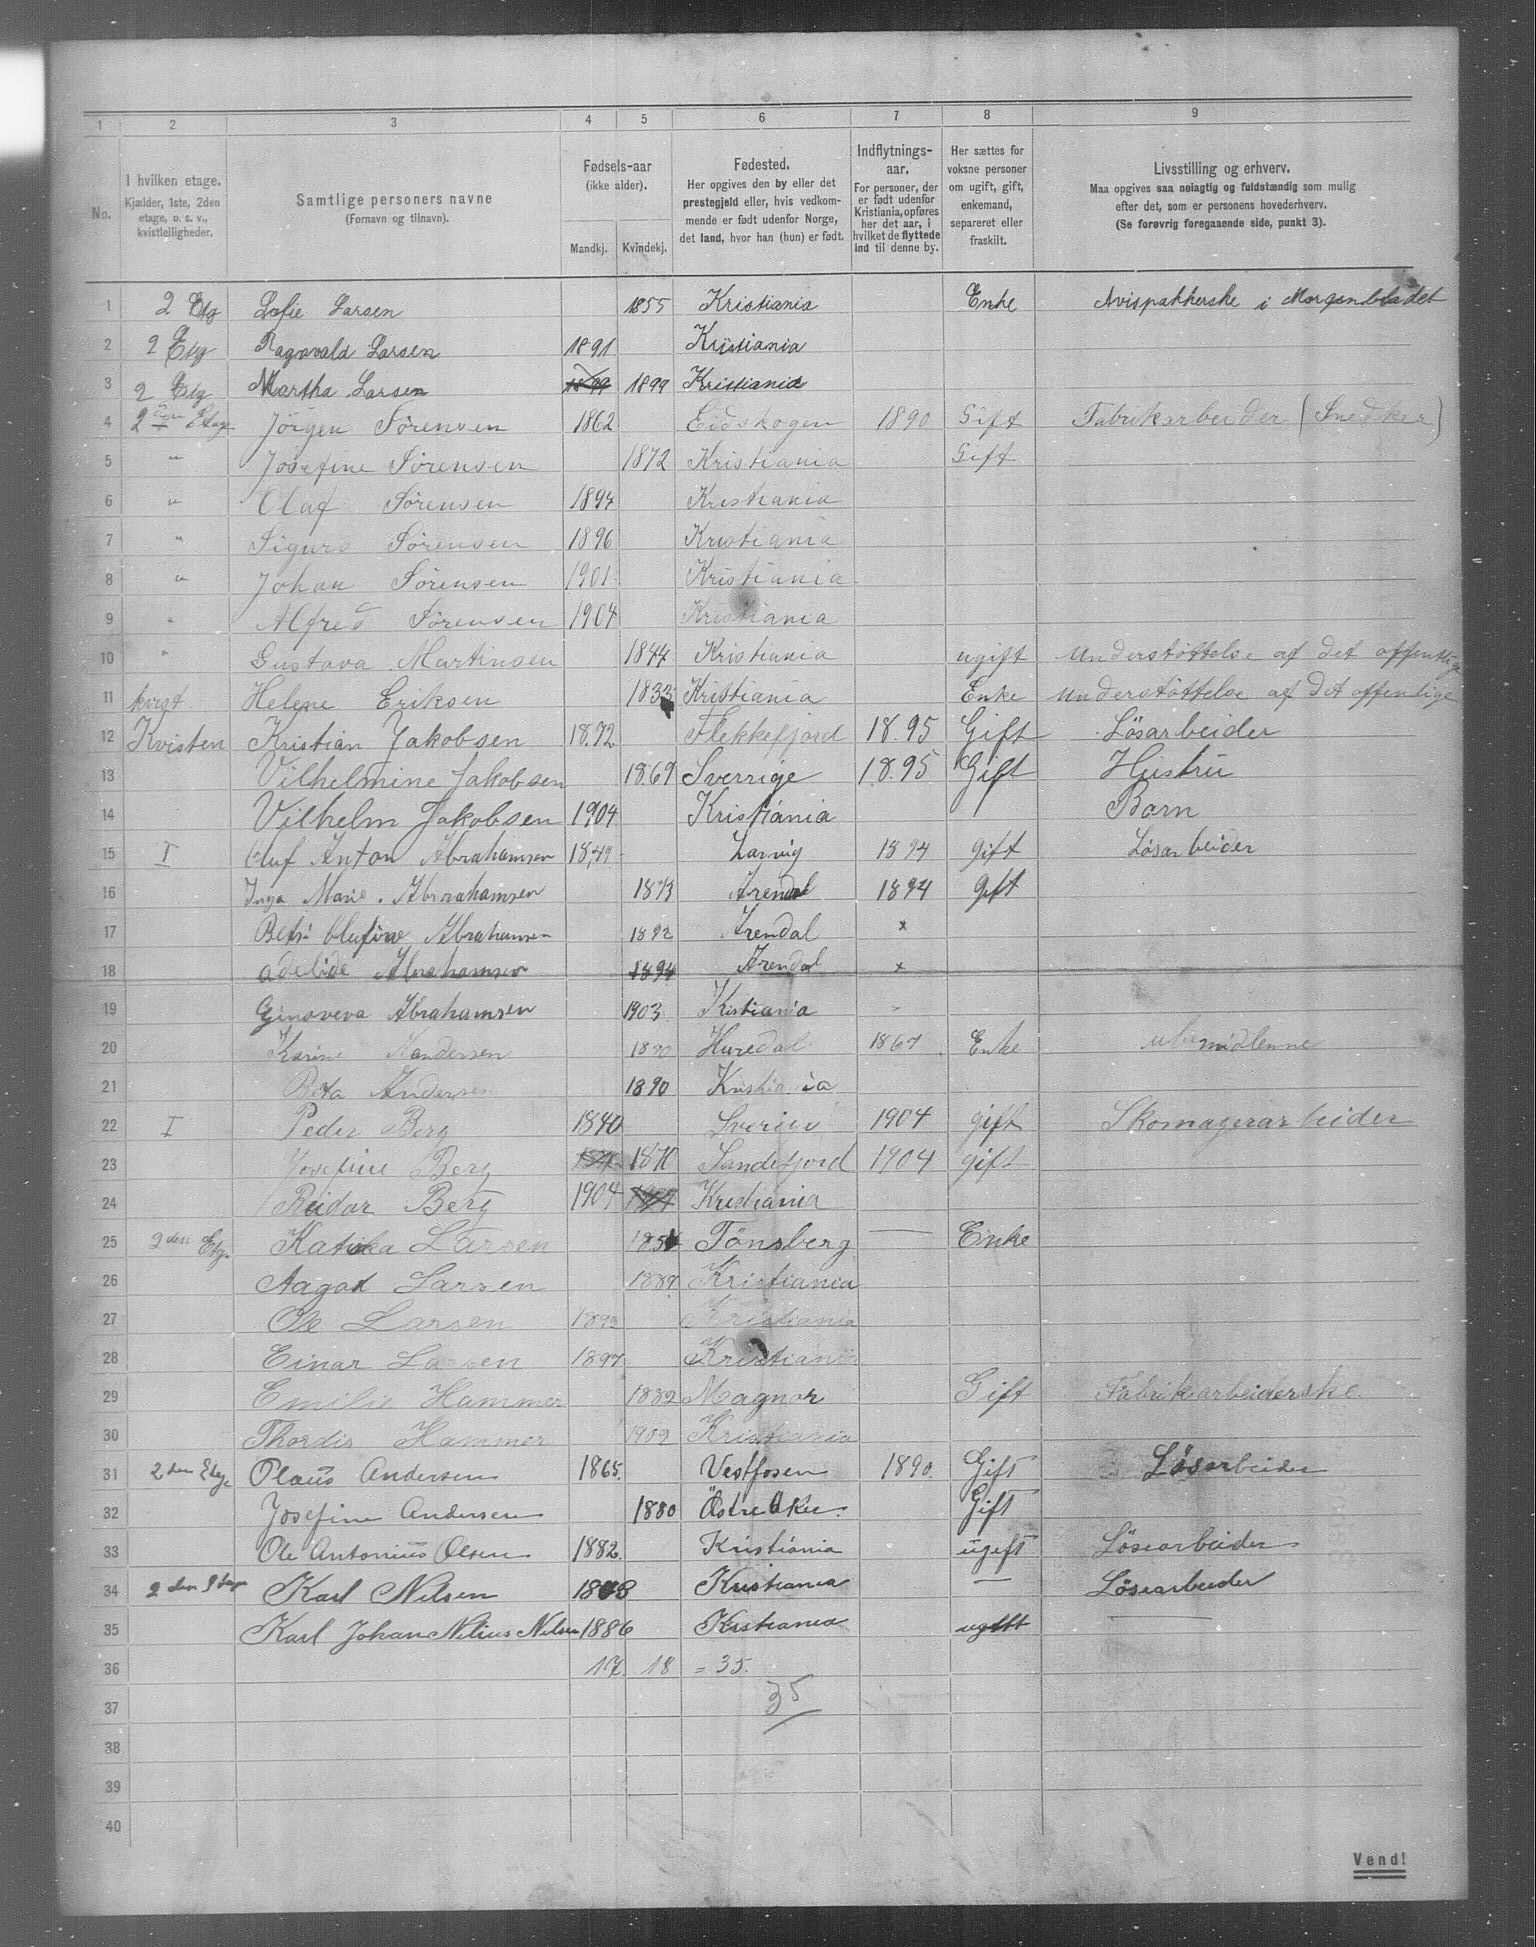 1 2 3 4 5 6 7 8 9
No.
I hvilken etage.
Kjælder, 1ste, 2den
etage, o. s. v.,
kvistleiligheder.
Samtlige personers navne
(Fornavn og tilnavn).
Fødsels-aar
(ikke alder).
Mandkj. Kvindekj.
Fødested.
Her opgives den by eller det
prestegjeld eller, hvis vedkom-
mende er født udenfor Norge,
det land, hvor han (hun) er født.
Indflytnings-
aar.
For personer, der
er født udenfor
Kristiania, opføres
her det aar, i
hvilket de flyttede
ind til denne by.
Her sættes for
voksne personer
om ugift, gift,
enkemand,
separeret eller
fraskilt.
Livsstilling og erhverv.
Maa opgives saa nøiagtig og fuldstændig som mulig
efter det, som er personens hovederhverv.
(Se forøvrig foregaaende side, punkt 3).
1 2 Etg Sofie Larsen 1855 Kristiania Enke Avispakkerske i Morgenbladet
2 2 Etg Ragnvald Larsen 1891 Kristiania
3 2 Etg Martha Larsen 1899 1899 Kristiania
4 2den Etage Jörgen Sørensen 1862 Eidskogen 1890 Gift Fabrikarbeider (Snedker)
5 " Josefine Sørensen 1872 Kristiania Gift
6 " Olaf Sørensen 1894 Kristiania
7 " Sigurd Sørensen 1896 Kristiania
8 " Johan Sørensen 1901 Kristiania
9 " Alfred Sørensen 1904 Kristiania
10 " Gustava Martinsen 1844 Kristiania ugift Understøttelse af det offentlige
11 kvist Helene Eriksen 1833 Kristiania Enke Understøttelse af det offentlige
12 Kvisten Kristian Jakobsen 1872 Flekkefjord 1895 Gift Lösarbeider
13 Vilhelmine Jakobsen 1869 Sverrige 1895 Gift Hustru
14 Vilhelm Jakobsen 1904 Kristiania Barn
15 I Oluf Anton Abrahamsen 1849 Larvig 1894 gift Løsarbeider
16 Inga Marie Abrahamsen 1873 Arendal 1894 gift
17 Abrahamsen 1892 Arendal x
18 adelide Abrahamsen 1894 Arendal x
19 Ginoveva Abrahamsen 1903 Kristiania
20 Karine Andersen Hurdal 1867 Enke ubemidlenne
21 Andersen 1890 Kristiania
22 I Peder Berg 1840 1904 gift Skomagerarbeider
23 Josefine Berg 1870 Sandefjord 1904 gift
24 Reidar Berg 1904 Kristiania
25 2den Etg. Katika Larsen Tönsberg Enke
26 Aagot Larsen 1887 Kristiania
27 Ole Larsen 1893 Kristiania
28 Einar Larsen 1897 Kristiania
29 Emilie Hammer 1882 Magnor Gift Fabrikarbeiderske
30 Thordis Hammer 1902 Kristiania
31 2den Etage Olaus Andersen 1865 Vestfosen 1890 Gift Løsarbeider
32 Josefine Andersen 1880 Östre Aker Gift
33 Ole Antonius Olsen 1882 Kristiania ugift Lösearbeider
34 2den Karl Nilsen Kristiania — Lösearbeider
35 Karl Johan Nilius Nilsen 1886 Kristiania ugift
36 17 18 = 35.
37 35
38
39
40
Vend!